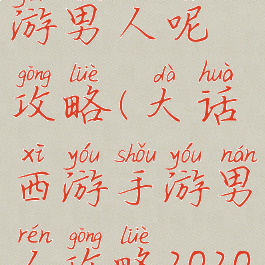 游男人呢
gōng lüè dà huà
攻略(大话
xī yóu shǒu yóu nán
西游手游男
rén gōng lüè
人攻略2020